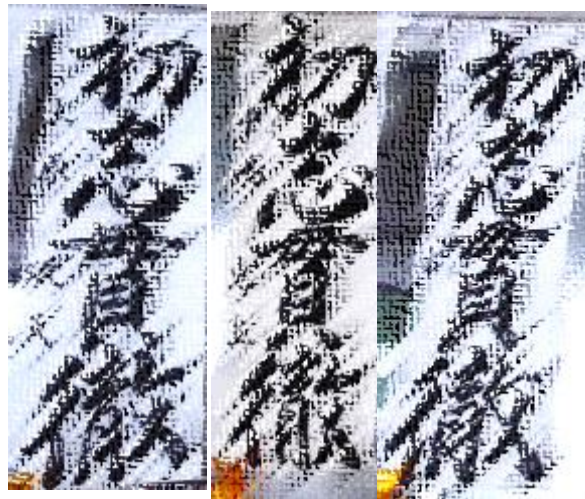 初志貫徹
初志貫徹
初志貫徹